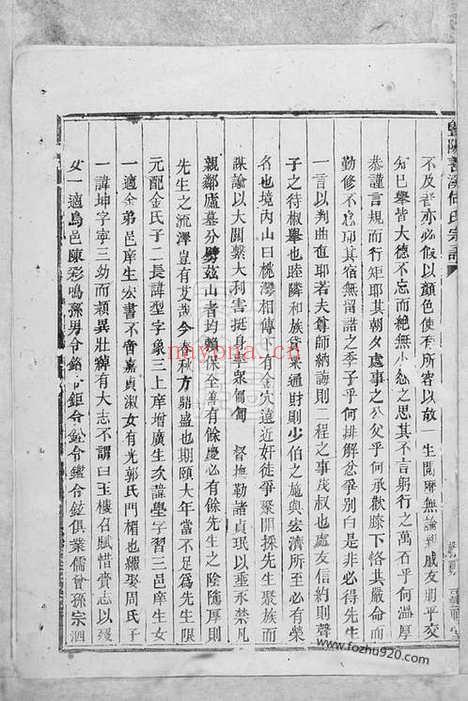 豐陽善溪何氏宗譜
不及者亦必假以顏色使有所容以故一生閨庭無諭卽戚友朋平交
知巳舉皆大德不忘而絕無小忿之思其不言躬行之萬石乎何溫厚
恭謹言規而行矩耶其朝夕處事之公父乎何承歡膝下恪供子職
勤修不怠耶其宿無留諾之季子乎何排解忿爭別白是非必得先生
一言以判曲直耶若夫尊師納誨則二程之事茂叔也處友信約則聲
子之待椒舉也睦隣和族貸乘通財則少伯之施與宏濟所必有榮
名也境內山曰桃灣相傳下有金穴遠近奸徒爭聚開採先生聚族而
謀諭以大關繫大利害挺身率眾匍匐 督撫勒諸貞珉以垂永禁凡
親鄰廬墓分劈茲山者均賴保全善有餘慶必有餘先生之陰隲厚則
先生之流澤豈有艾哉今春秋方鼎盛也期頤大年當不足爲先生限
元配金氏子二長諱型字象三上庠增廣生次諱壆字習三邑庠生女
一適金弟邑庠生宏書不啻嘉貞淑女有光郭氏門楣也繼娶周氏子
一諱坤字寧三幼而穎異壯韡有大志不謂曰玉樓召賦惜賫志以殁
女一適烏邑陳彩鳴孫男令銘令鉅令鈆令鏞令鉉俱業儒曾孫宗泗
nayona.cn
www.fozhu920.com